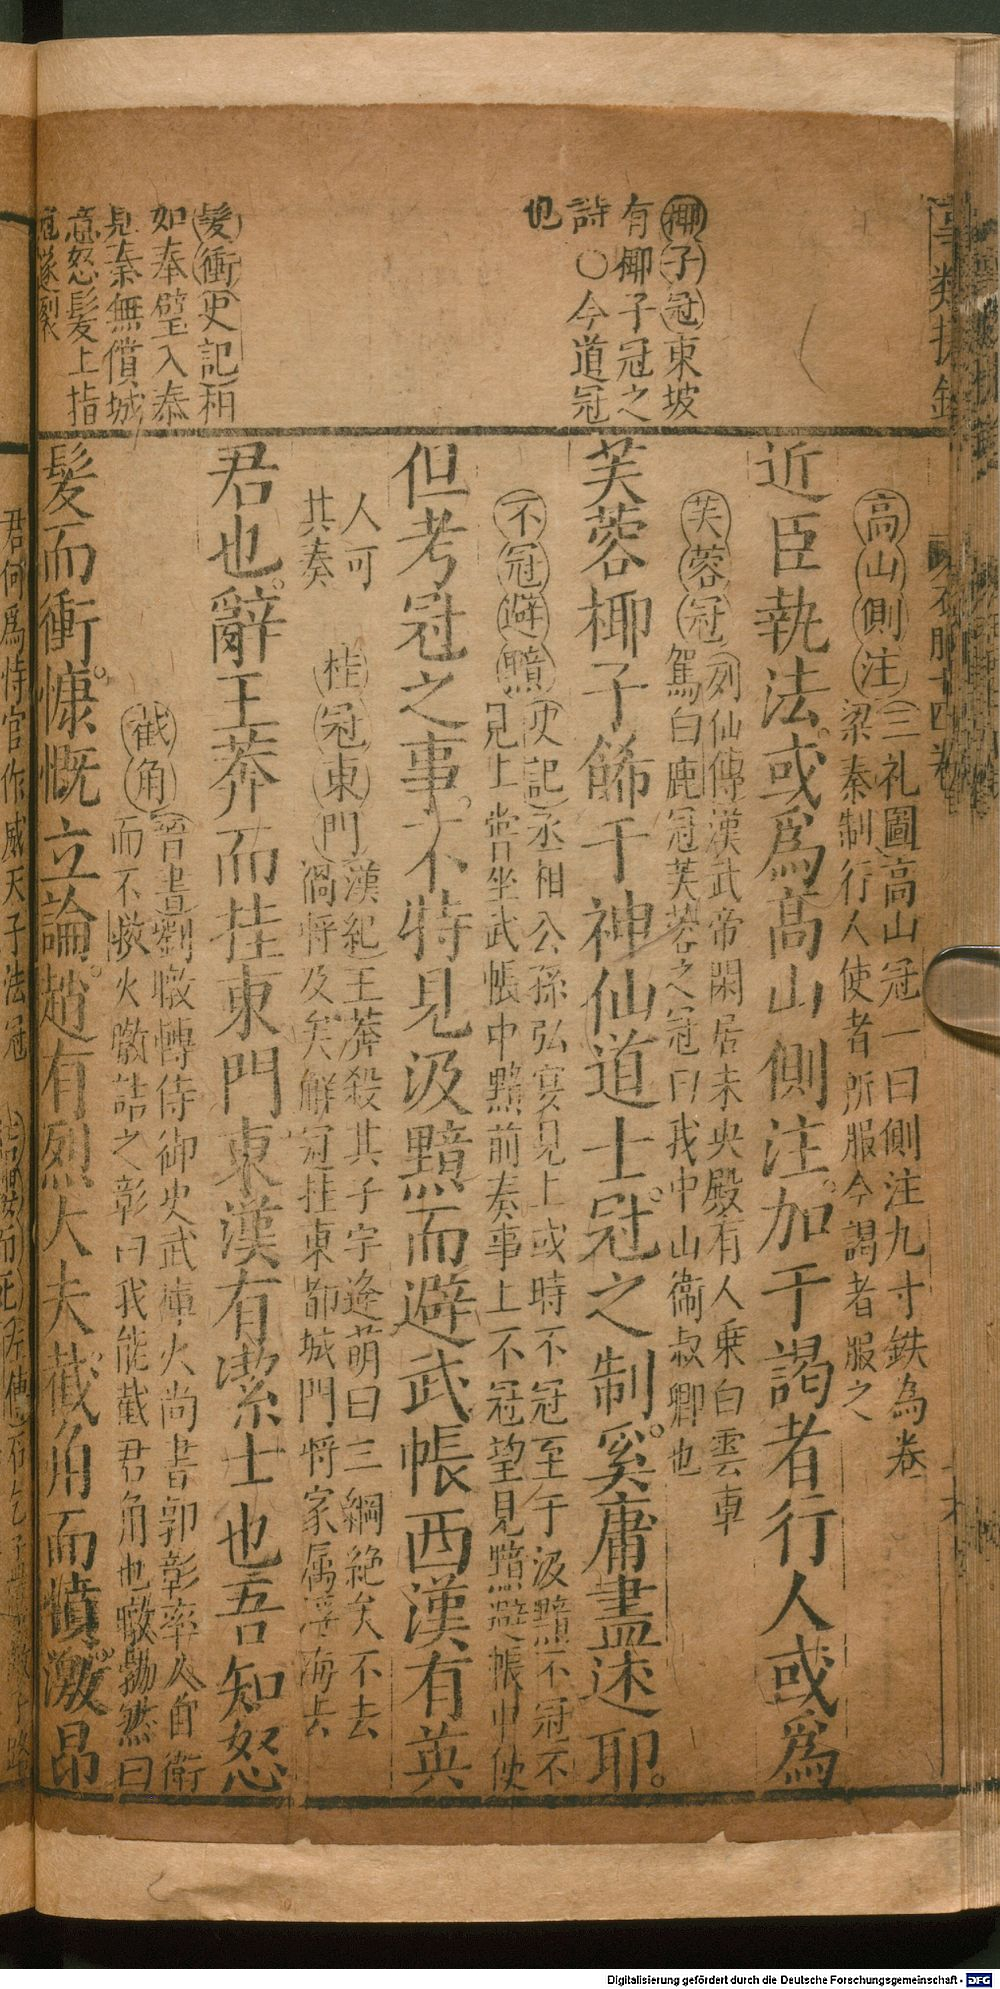 椰子冠東坡
有椰子冠之
詩〇今道冠
也
髮衝史記相
如奉璧入秦
見秦無償城
意怒髮上指
冠遂裂
高山側注三礼圖高山冠一曰側注九寸鉄為卷
梁秦制行人使者所服今謁者服之
近臣執法或爲高山側注加于謁者行人或爲
芙蓉冠列仙傳漢武帝閑居未央殿有人乗白雲車
駕白鹿冠芙蓉之冠曰我中山衞叔卿也
芙蓉椰子餙于神仙道士冠之制奚庸盡述耶
不冠避黯史記丞相公孫弘宴見上或時不冠至于汲黯不冠不
見上嘗坐武帳中黯前奏事上不冠望見黯避帳中使
但考冠之事不特見汲黯而避武帳西漢有英
人可
其奏
桂冠東門漢紀王莽殺其子宇逄萌曰三綱絶矣不去
禍將及矣觧冠挂東都城門將家属浮海去
君也辭王莽而挂東門東漢有潔士也吾知怒
截角晉書劉暾轉侍御史武庫火尚書郭彰率人自衛
而不救火暾詰之彰曰我能截君角也暾勃然曰
髮而衝慷慨立論趙有烈大夫截角而憤激昻
君何爲恃官作威天子法冠
Digitalisierung gefördert durch die Deutsche Forschungsgemeinschaft - DFG